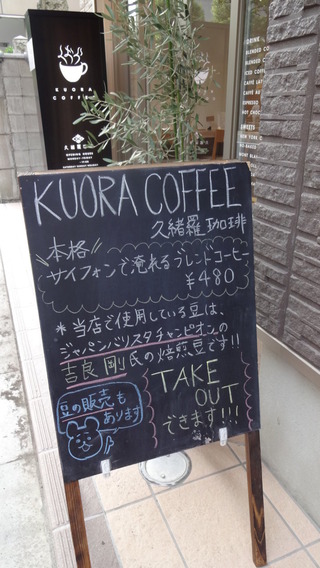 KUORA
COFFEE
DRINK
KUORA COFFEE
久緒羅 珈琲
本格
サイフォンで淹れるブレンドコーヒー
¥480
*当店で使用している豆は、
ジャパンバリスタチャンピオンの
吉良 剛 氏の焙煎豆です!!
豆の販売も
あります
TAKE
OUT
できます!!!